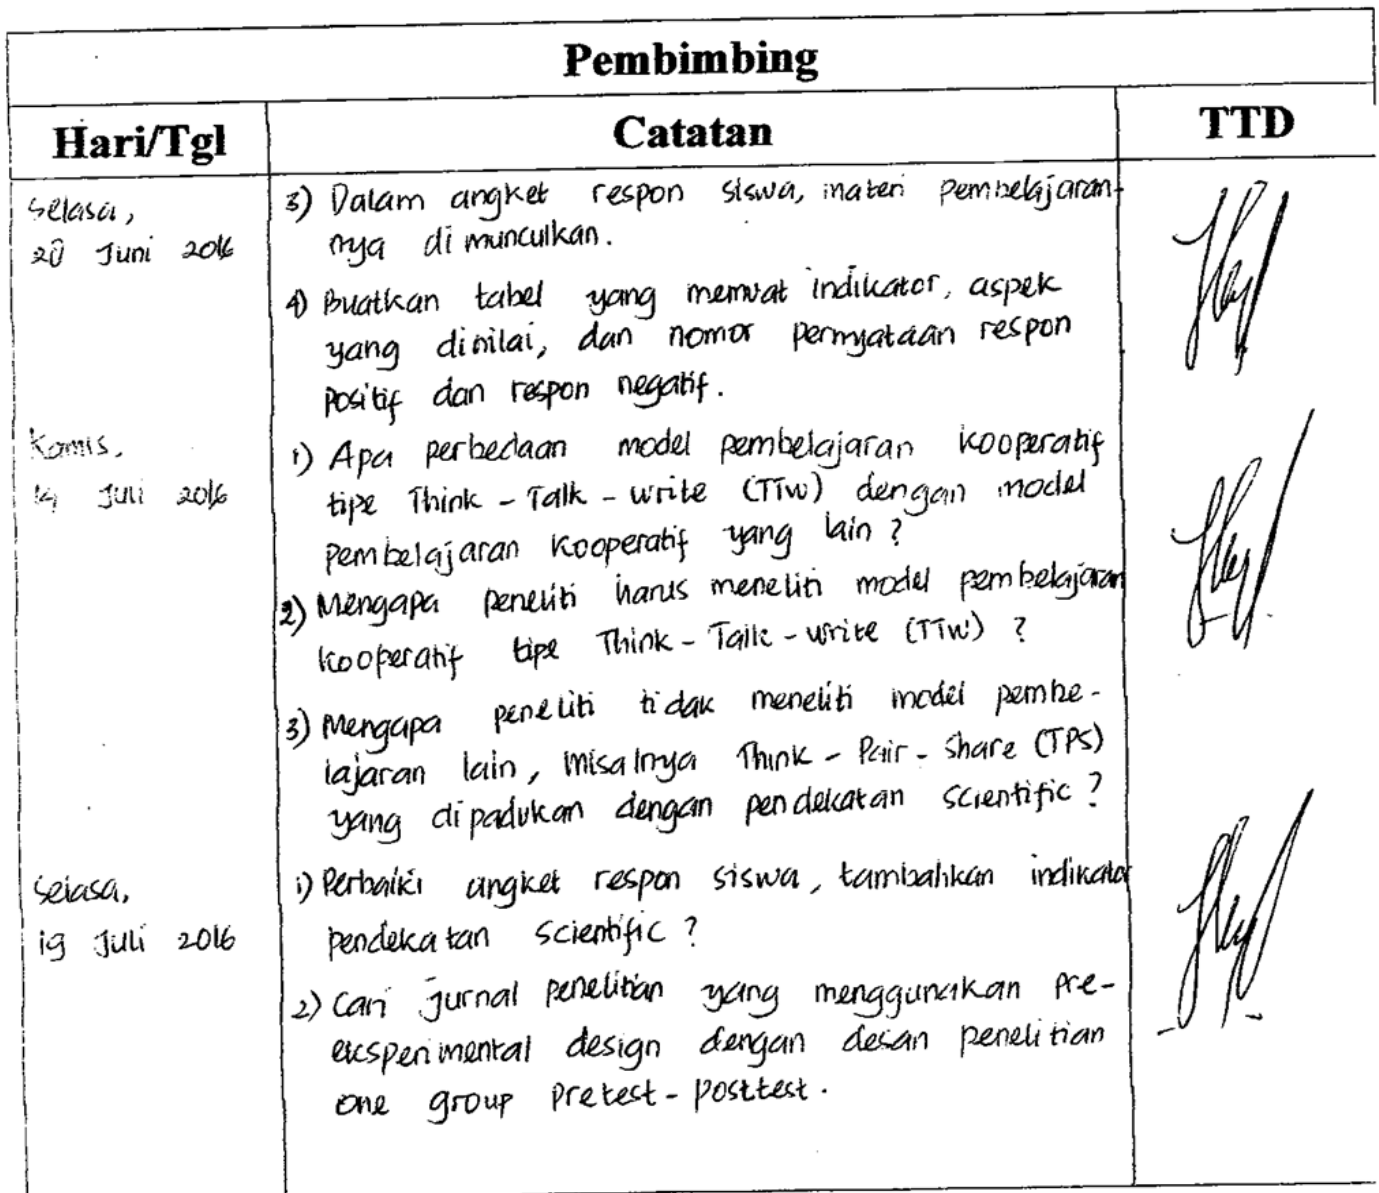 Pembimbing
Hari/Tgl Catatan TTD
Selasa, 3) Dalam angket respon siswa, materi pembelajaran-
Juni 2016 nya di munculkan.
4) Buatkan tabel yang memuat indikator, aspek
yang dinilai, dan nomor pernyataan respon
positif dan respon negatif.
Kamis, 1) Apa perbedaan model pembelajaran kooperatif
14 Juli 2016 tipe Think - Talk - Write (TTW) dengan model
pembelajaran kooperatif yang lain ?
2) Mengapa peneliti harus meneliti model pembelajaran
kooperatif tipe Think - Talk - Write (TTW) ?
3) Mengapa peneliti tidak meneliti model pembe-
lajaran lain, misalnya Think - Pair - Share (TPS)
yang dipadukan dengan pendekatan scientific ?
Selasa, 1) Perbaiki angket respon siswa, tambahkan indikator
19 Juli 2016 pendekatan scientific ?
2) Cari jurnal penelitian yang menggunakan pre-
eksperimental design dengan desan penelitian
one group pretest - posttest.